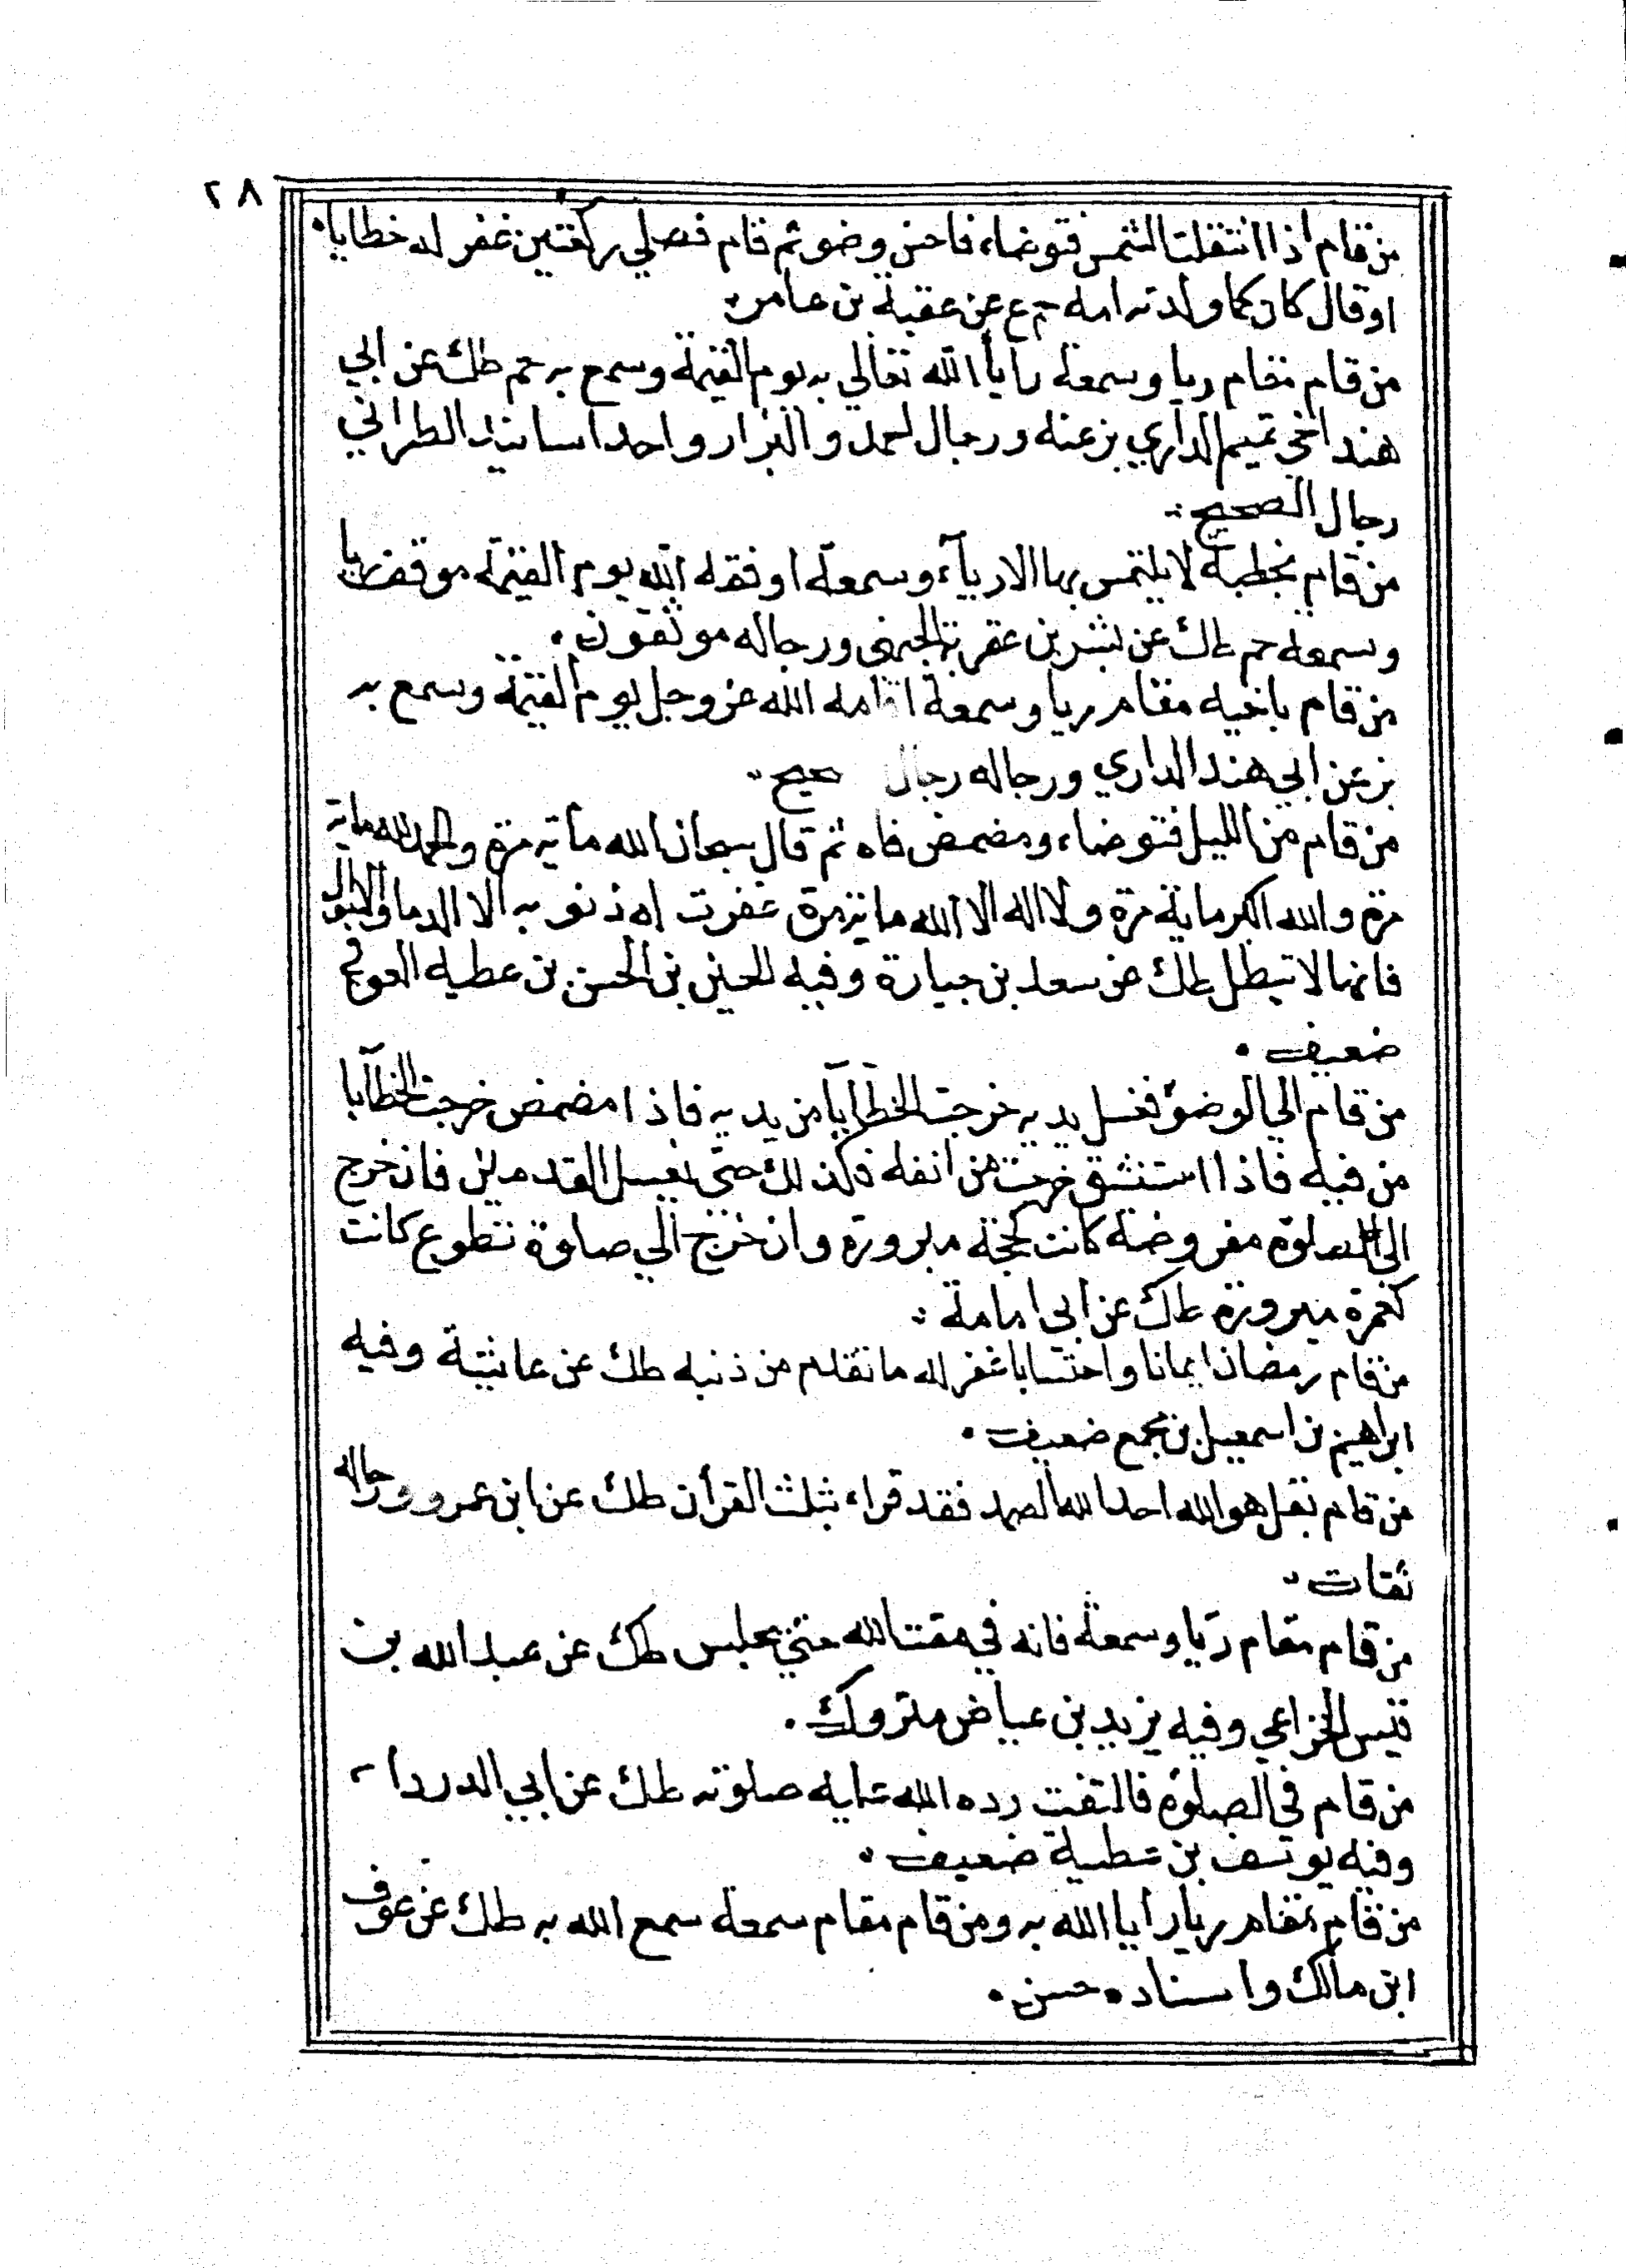 ٢٨
من قام اذا انتقلت الشمس فتوضاء فاحسن وضوئه ثم قام فصلي ركعتين غفر له خطاياه
او قال كان كما ولدته امه حم ع عن عقبة بن عامر
من قام مقام ريا وسمعة رايا الله تعالي به يوم القيمة وسمع به حم طك عن ابي
هند اخي تميم الداري بز عنه ورجال احمد والبزار واحد اسانيد الطبراني
رجال الصحيح
من قام بخطبة لا يلتمس بها الا رياء وسمعة اوقفه الله يوم القيمة موقف ريا
وسمعة حم طك عن بشر بن عقربة الجهني ورجاله موثقون
من قام باخيه مقام ريا وسمعة اقامه الله عز وجل يوم القيمة وسمع به
بز عن ابي هند الداري ورجاله رجال صحيح
من قام من الليل فتوضاء ومضمض فاه ثم قال سبحان الله مأته مرة والحمد لله مايته
مرة والله اكبر ماية مرة ولا اله الا الله ماية مرة غفرت له ذنوبه الا الدما والاموال
فانها لا تبطل طك عن سعد بن جنادة وفيه الحسين بن الحسن بن عطيه العوفي
ضعيف
من قام الي الوضوء فغسل يديه خرجت الخطايا من يديه فاذا مضمض خرجت الخطايا
من فيه فاذا استنشق خرجت من انفه فكذلك حتي يغسل القدمين فان خرج
الي الصلوة مفروضة كانت كحجة مبرورة وان خرج الي صلوة تطوع كانت
كعمرة مبرورة طك عن ابي امامة
من قام رمضان ايمانا واحتسابا غفر له ما تقدم من ذنبه طك عن عائشة وفيه
ابراهيم بن اسمعيل بن مجمع ضعيف
من قام بقل هو الله احد الله الصمد فقد قراء بثلث القرأن طك عن ابن عمرو ورجاله
ثقات
من قام مقام ريا وسمعة فانه في مقت الله حتي يجلس طك عن عبد الله بن
قيس الخزاعي وفيه يزيد بن عياض متروك
من قام في الصلوة فالتفت رده الله عليه صلوته طك عن ابي الدردا
وفيه يوسف بن عطية ضعيف
من قام مقام ريا رايا الله به ومن قام مقام سمعة سمع الله به طك عن عوف
ابن مالك واسناده حسن